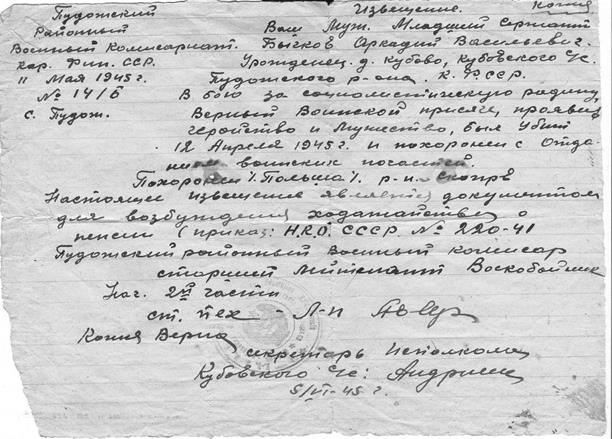 Пудожский Извещение. Копия
Районный Ваш Муж. Младший Сержант
Военный Комиссариат. Бычков Аркадий Васильевич.
Кар. Фин. ССР. Уроженец. д. Кубово, Кубовского С/с.
11 Мая 1945 г. Пудожского р-она. К.Ф.ССР.
№ 14/Б В бою за социалистическую родину,
с. Пудож. Верный Воинской присяге, проявив
геройство и мужество, был убит
12 Апреля 1945 г. и похоронен с Отда-
нием воинских почастей.
Похоронен /. Польша/. р-н.
Настоящее извещение является документом
для возбуждения ходатайства о
пенсии (приказ: Н.К.О. СССР. № 220-41
Пудожский районный Военный комиссар
старший Лейтенант Воскобойник
Нач. 2й части
ст. тех - Л-н
Копия Верна
секретарь Исполкома
Кубовского С/с:
5/VI-45 г.